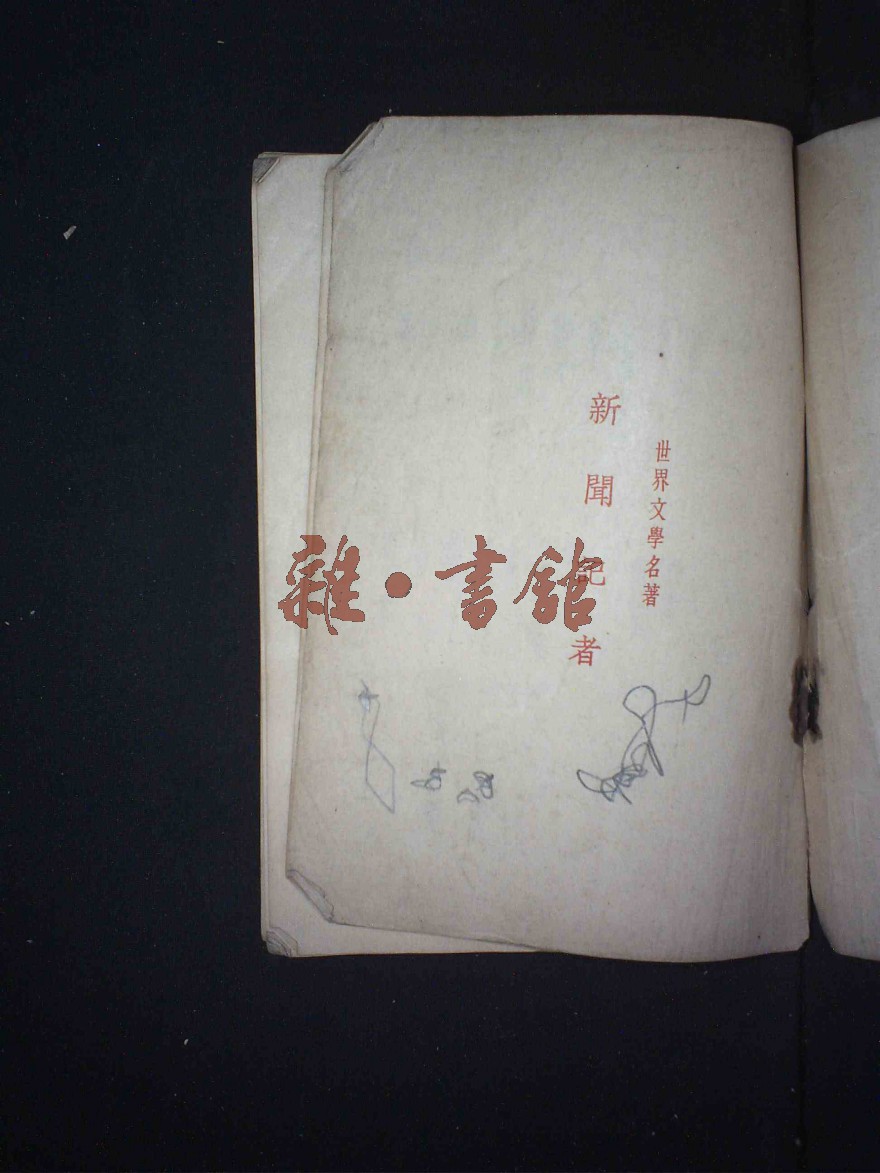 世界文學名著
新聞記者
雜·書館